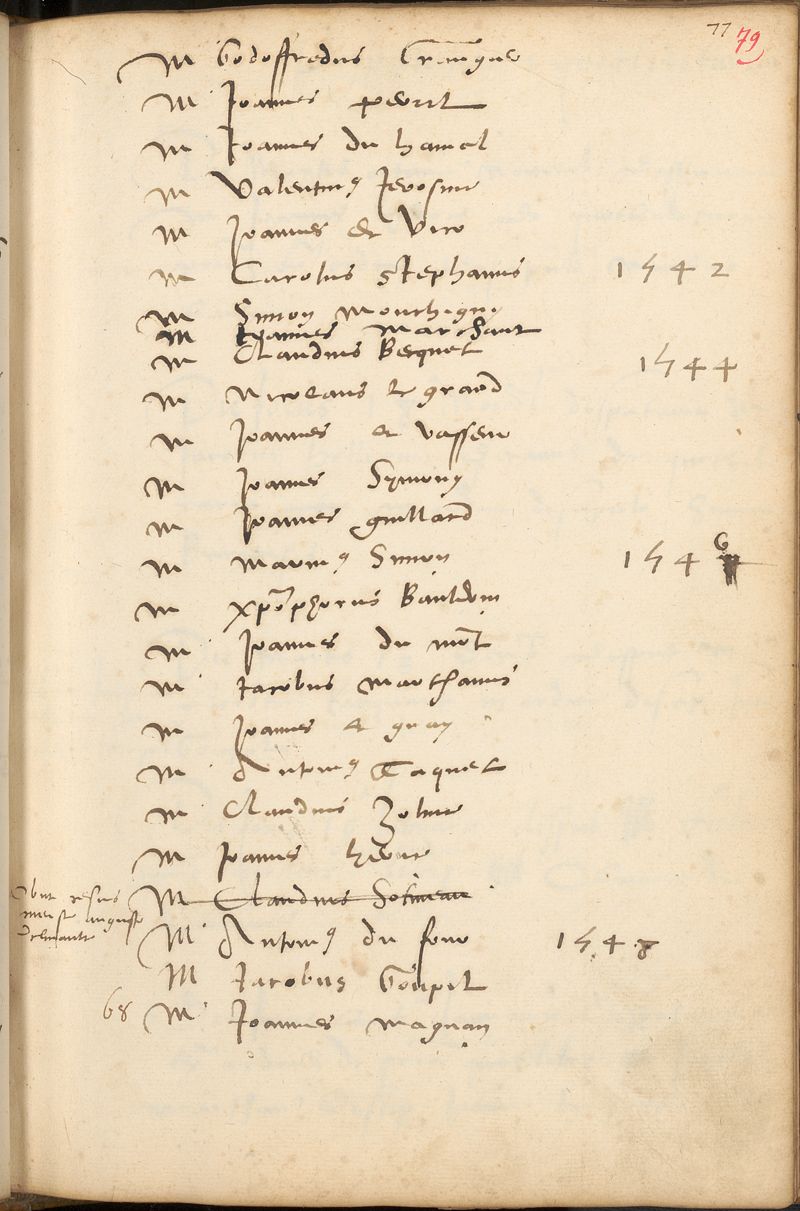 77 79
M Godoffredus Grangier
M Joannes
M Joannes du hamel
M Valentinus
M Joannes de Vico
M Carolus Stephanus 1542
M Simon
M Joannes Marchant
M Claudius Becquet 1544
M Nicolaus le grand
M Joannes le vasseur
M Joannes Symony
M Joannes guillard
M Simon 1546
M xpophorus Bauldoin
M Joannes du mot
M Jacobus marchanus
M Joannes le guay
M Antonius Taquet
M Claudius
M Joannes
M Claudius
Obiit
mense augusto
M Antonius du four 1548
M Jacobus Goupil
68 M Joannes magnan